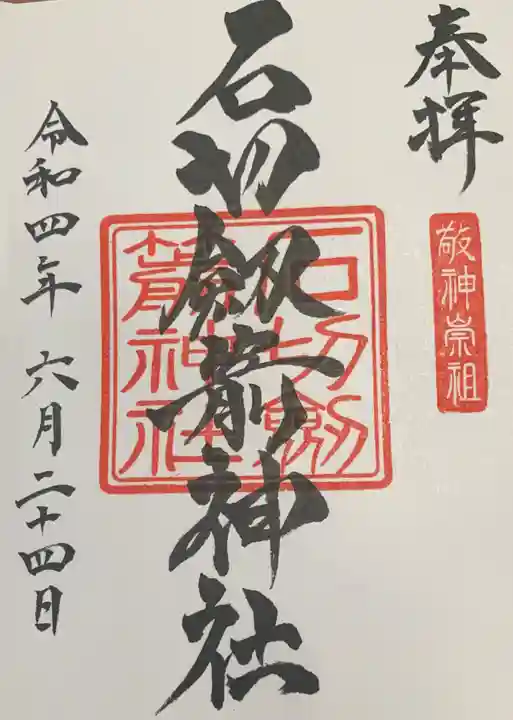 奉拝
敬神崇祖
石切劔箭神社
石切劔
箭神社
令和四年 六月二十四日